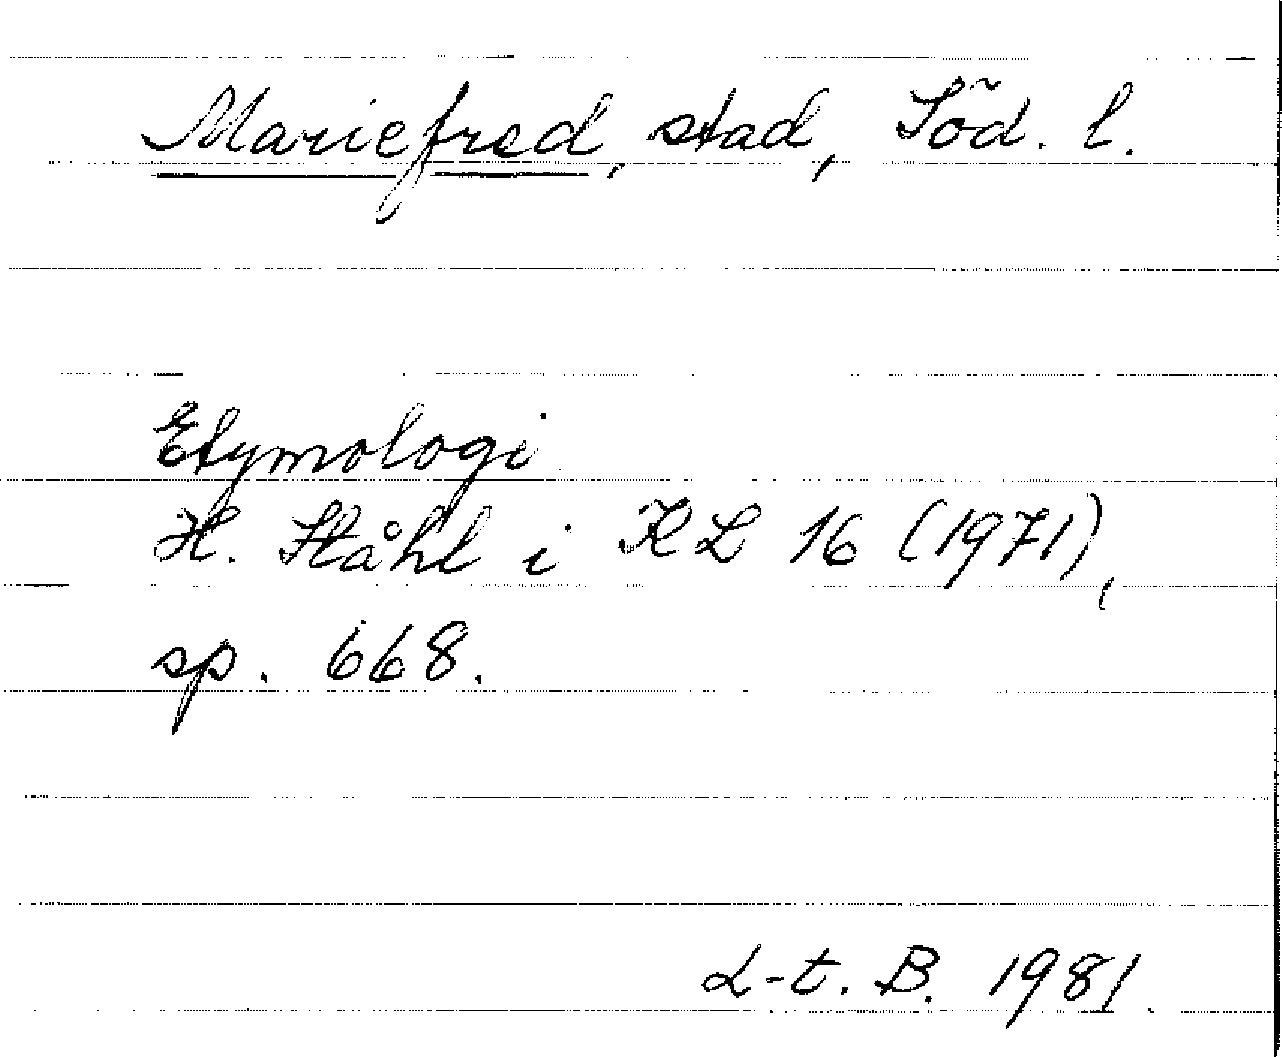 Mariefred, stad, Söd. l.
Etymologi
H. Ståhl i KL 16 (1971),
sp. 668.
L-t. B. 1981